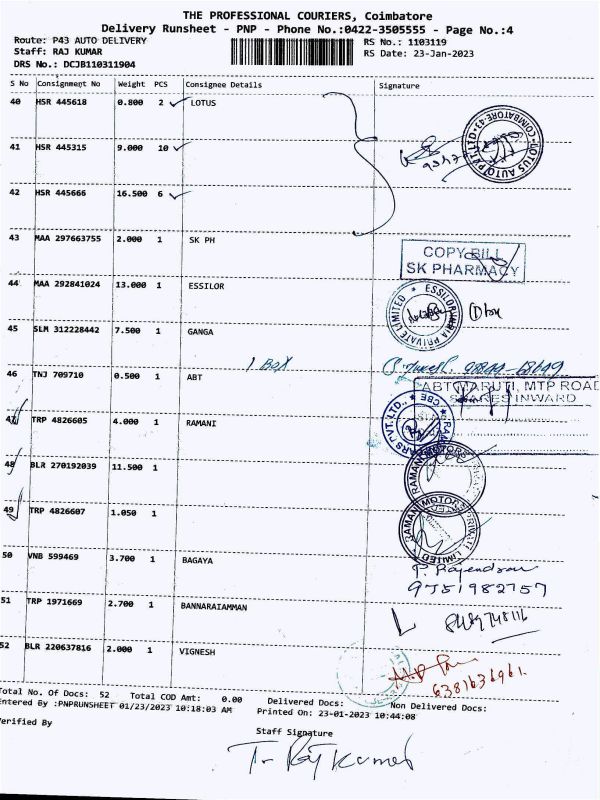 THE PROFESSIONAL COURIERS, Coimbatore
Delivery Runsheet - PNP - Phone No.:0422-3505555 - Page No.:4
Route: P43 AUTO DELIVERY
RS No.: 1103119
Staff: RAJ KUMAR
RS Date: 23-Jan-2023
DRS No.: DCJB110311904
S No Consignment No Weight PCS Consignee Details Signature
40 HSR 445618 0.800 2 LOTUS
LOTUS AUTO PVT LTD COIMBATORE-43
41 HSR 445315 9.000 10
42 HSR 445666 16.500 6
43 MAA 297663755 2.000 1 SK PH
COPY BILL
SK PHARMACY
44 MAA 292841024 13.000 1 ESSILOR
ESSILOR INDIA PRIVATE LIMITED
1 box
45 SLM 312228442 7.500 1 GANGA
1 BOX
46 TNJ 709710 0.500 1 ABT
ABT MARUTI, MTP ROAD
SPARES INWARD
47 TRP 4826605 4.000 1 RAMANI
CARS PVT. LTD., CBE
48 BLR 270192039 11.500 1
RAMANI MOTORS PRIVATE
49 TRP 4826607 1.050 1
RAMANI MOTORS PRIVATE LIMITED
50 VNB 599469 3.700 1 BAGAYA
P. Rajendran
9751982757
51 TRP 1971669 2.700 1 BANNARAIAMMAN
52 BLR 220637816 2.000 1 VIGNESH
6381636961.
Total No. Of Docs: 52 Total COD Amt: 0.00 Delivered Docs: Non Delivered Docs:
Entered By :PNPRUNSHEET 01/23/2023 10:18:03 AM Printed On: 23-01-2023 10:44:08
Verified By
Staff Signature
T. Raj Kumar